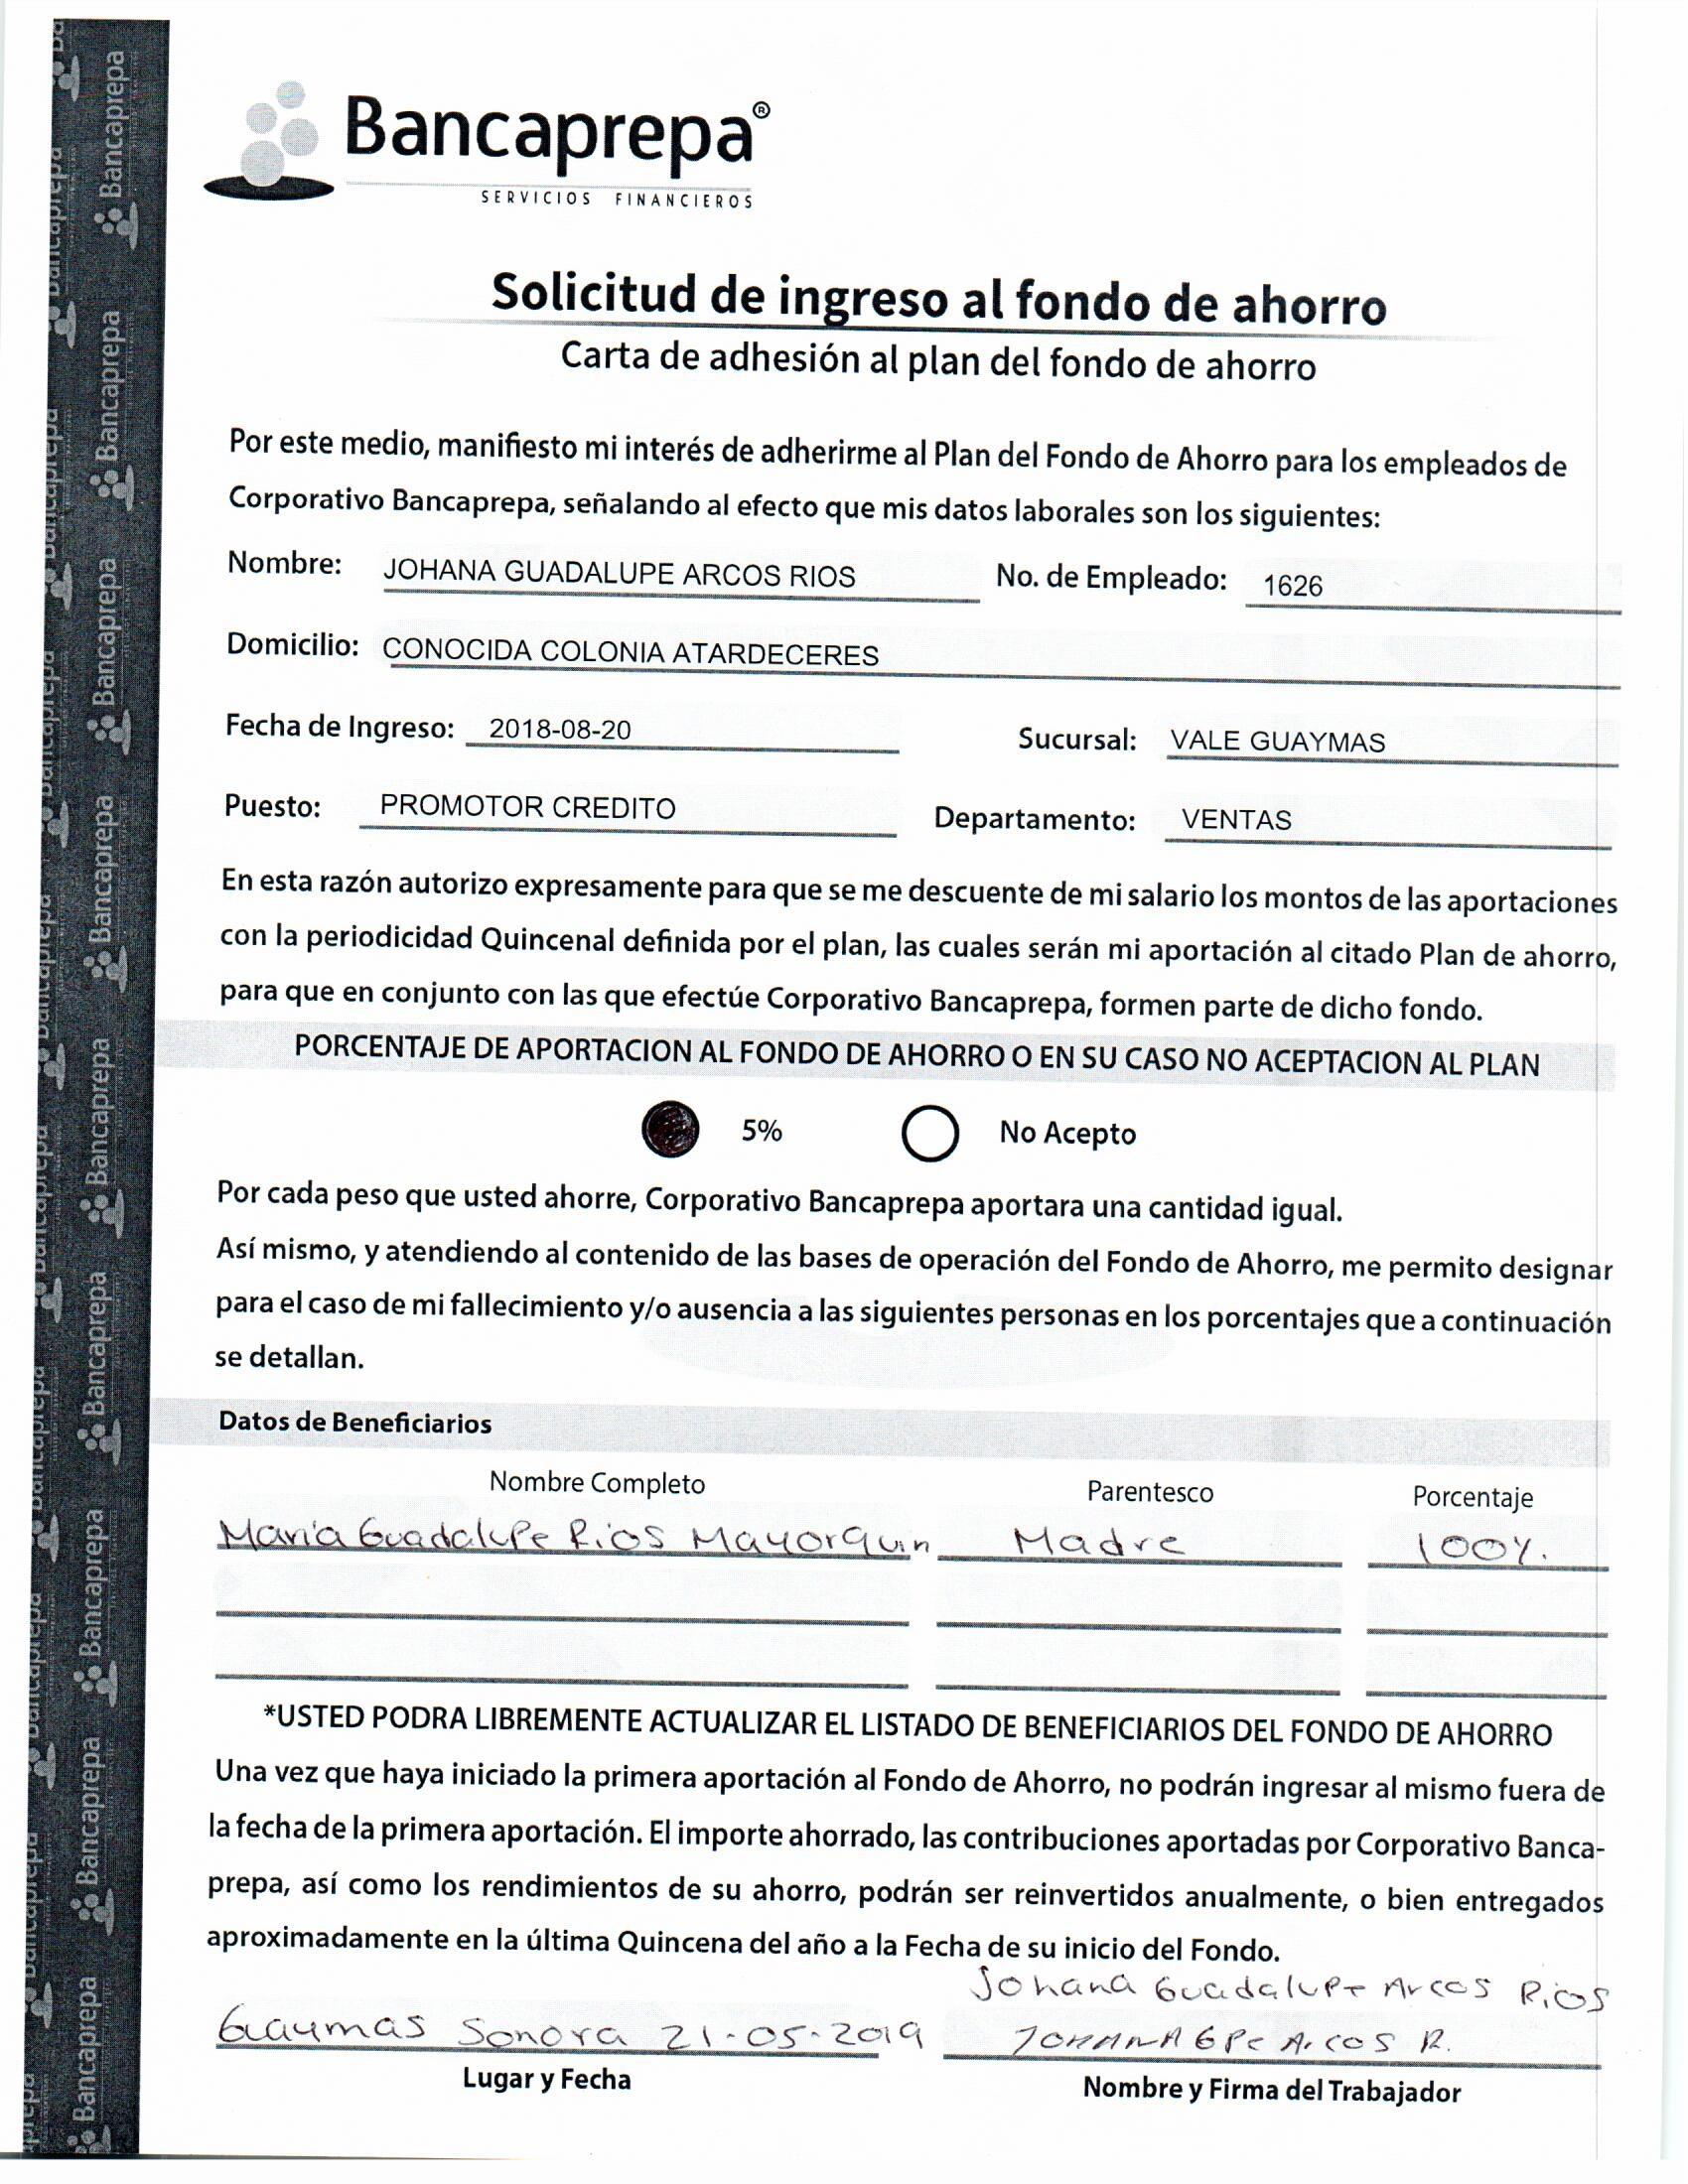 Bancaprepa®
SERVICIOS FINANCIEROS
Solicitud de ingreso al fondo de ahorro
Carta de adhesión al plan del fondo de ahorro
Por este medio, manifiesto mi interés de adherirme al Plan del Fondo de Ahorro para los empleados de
Corporativo Bancaprepa, señalando al efecto que mis datos laborales son los siguientes:
Nombre: JOHANA GUADALUPE ARCOS RIOS No. de Empleado: 1626
Domicilio: CONOCIDA COLONIA ATARDECERES
Fecha de Ingreso: 2018-08-20 Sucursal: VALE GUAYMAS
Puesto: PROMOTOR CREDITO Departamento: VENTAS
En esta razón autorizo expresamente para que se me descuente de mi salario los montos de las aportaciones
con la periodicidad Quincenal definida por el plan, las cuales serán mi aportación al citado Plan de ahorro,
para que en conjunto con las que efectúe Corporativo Bancaprepa, formen parte de dicho fondo.
PORCENTAJE DE APORTACION AL FONDO DE AHORRO O EN SU CASO NO ACEPTACION AL PLAN
5% No Acepto
Por cada peso que usted ahorre, Corporativo Bancaprepa aportara una cantidad igual.
Así mismo, y atendiendo al contenido de las bases de operación del Fondo de Ahorro, me permito designar
para el caso de mi fallecimiento y/o ausencia a las siguientes personas en los porcentajes que a continuación
se detallan.
Datos de Beneficiarios
Nombre Completo Parentesco Porcentaje
Maria Guadalupe Rios Mayorquin Madre 100%.
*USTED PODRA LIBREMENTE ACTUALIZAR EL LISTADO DE BENEFICIARIOS DEL FONDO DE AHORRO
Una vez que haya iniciado la primera aportación al Fondo de Ahorro, no podrán ingresar al mismo fuera de
la fecha de la primera aportación. El importe ahorrado, las contribuciones aportadas por Corporativo Banca-
prepa, así como los rendimientos de su ahorro, podrán ser reinvertidos anualmente, o bien entregados
aproximadamente en la última Quincena del año a la Fecha de su inicio del Fondo.
Johana Guadalupe Arcos Rios
Guaymas Sonora 21-05-2019 JOHANA GPE ArCOS R.
Lugar y Fecha Nombre y Firma del Trabajador